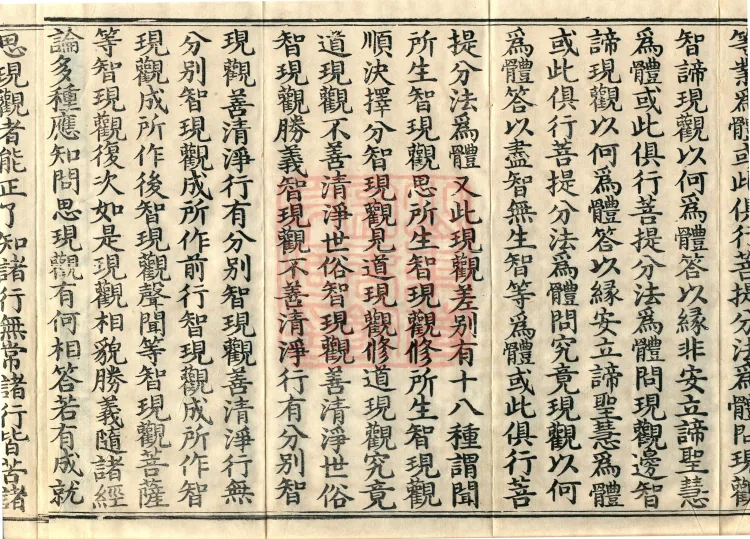 等慧為體或此俱行菩提分法為體問現觀
智諦現觀以何為體答以緣非安立諦聖慧
為體或此俱行菩提分法為體問現觀邊智
諦現觀以何為體答以緣安立諦聖慧為體
或此俱行菩提分法為體問究竟現觀以何
為體答以盡智無生智等為體或此俱行菩
提分法為體又此現觀差別有十八種謂聞
所生智現觀思所生智現觀修所生智現觀
順決擇分智現觀見道現觀修道現觀究竟
道現觀不善清淨世俗智現觀善清淨世俗
智現觀勝義智現觀不善清淨行有分別智
現觀善清淨行有分別智現觀善清淨行無
分別智現觀成所作前行智現觀成所作智
現觀成所作後智現觀聲聞等智現觀菩薩
等智現觀復次如是現觀相貌勝義隨諸經
論多種應知問思現觀有何相答若有成就
思現觀者能正了知諸行無常諸行皆苦諸